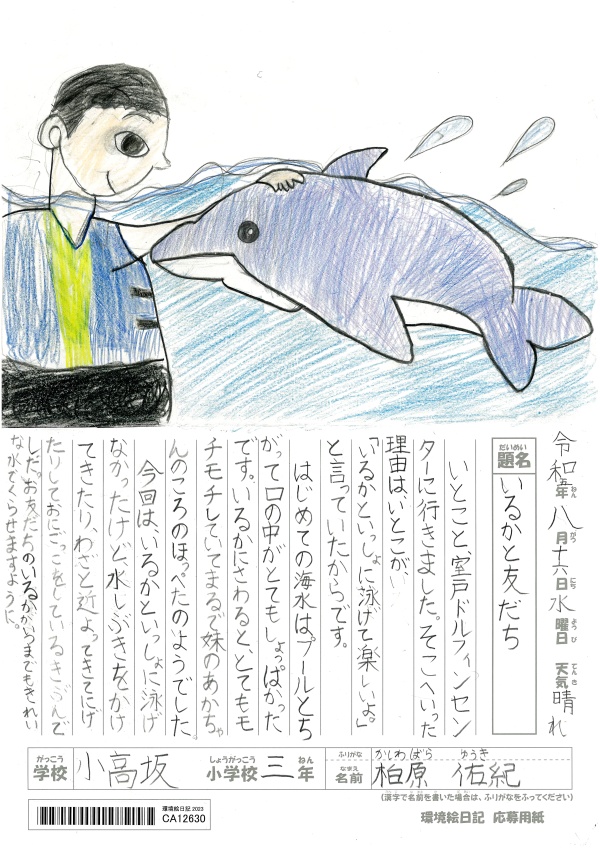 令和五年八月十六日水曜日 天気晴れ
ねん がつ にち ようび てんき
だいめい
題名
いるかと友だち
いとこと、室戸ドルフィンセン
ターに行きました。そこへいった
理由は、いとこが、
「いるかといっしょに泳げて楽しいよ。」
と言っていたからです。
はじめての海水は、プールとち
がって口の中がとてもしょっぱかった
です。いるかにさわると、とてもモ
チモチしていてまるで妹のあかちゃ
んのころのほっぺたのようでした。
今回は、いるかといっしょに泳げ
なかったけど水しぶきをかけ
てきたり、わざと近よってきてにげ
たりしておにごっこをしているきぶんで
した。お友だちのいるかがいつまでもきれい
な水でくらせますように。
がっこう
学校
小高坂
しょうがっこう
小学校
三
ねん
年
ふりがな
かしわばら ゆうき
なまえ
名前
柏原 佑紀
(漢字で名前を書いた場合は、ふりがなをふってください)
環境絵日記 応募用紙
環境絵日記 2023
CA12630